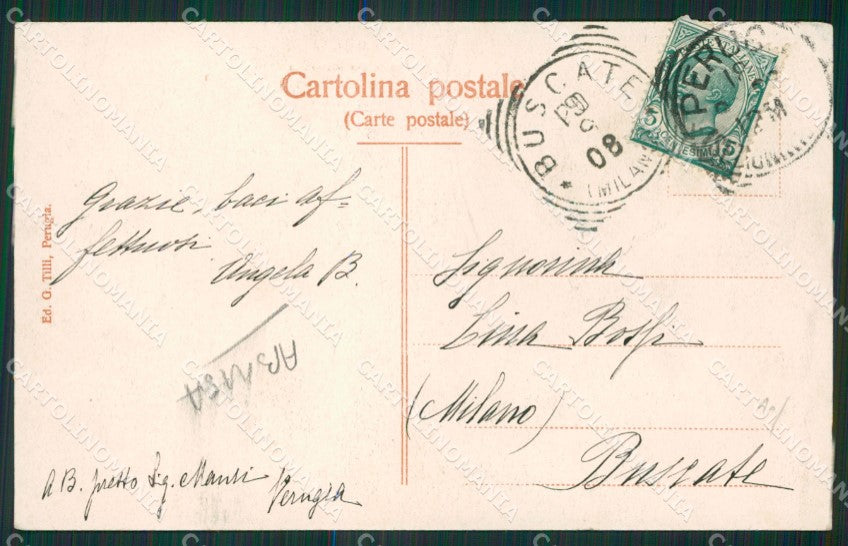 Cartolina postale
(Carte postale)
BUSCATE
08
(MILANO)
PERUGIA
CENTESIMI 5
Grazie, baci af=
fettuosi
Angela B.
Signorina
Lina
(Milano)
Buscate
A B. presso Sig. Mansi
Perugia
Ed. G. Tilli, Perugia.
CARTOLINOMANIA